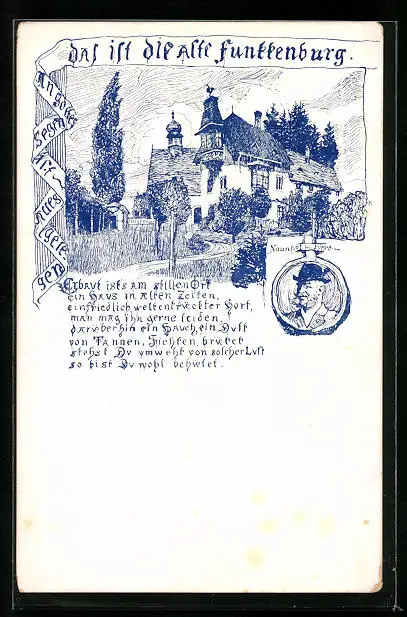 das ist die alte Funkkenburg.
An Gottes
Segen
ist
alles
gele-
gen
Naunhof bei Leipzig
Erbaut ists am stillen Ort
ein Haus in alten Zeiten,
ein friedlich weltentrückter Hort,
man mag ihn gerne leiden,
darüberhin ein Hauch, ein Duft
von Tannen, Fichten, brütet
stehst Du umweht von solcher Luft
so bist Du wohl behütet.